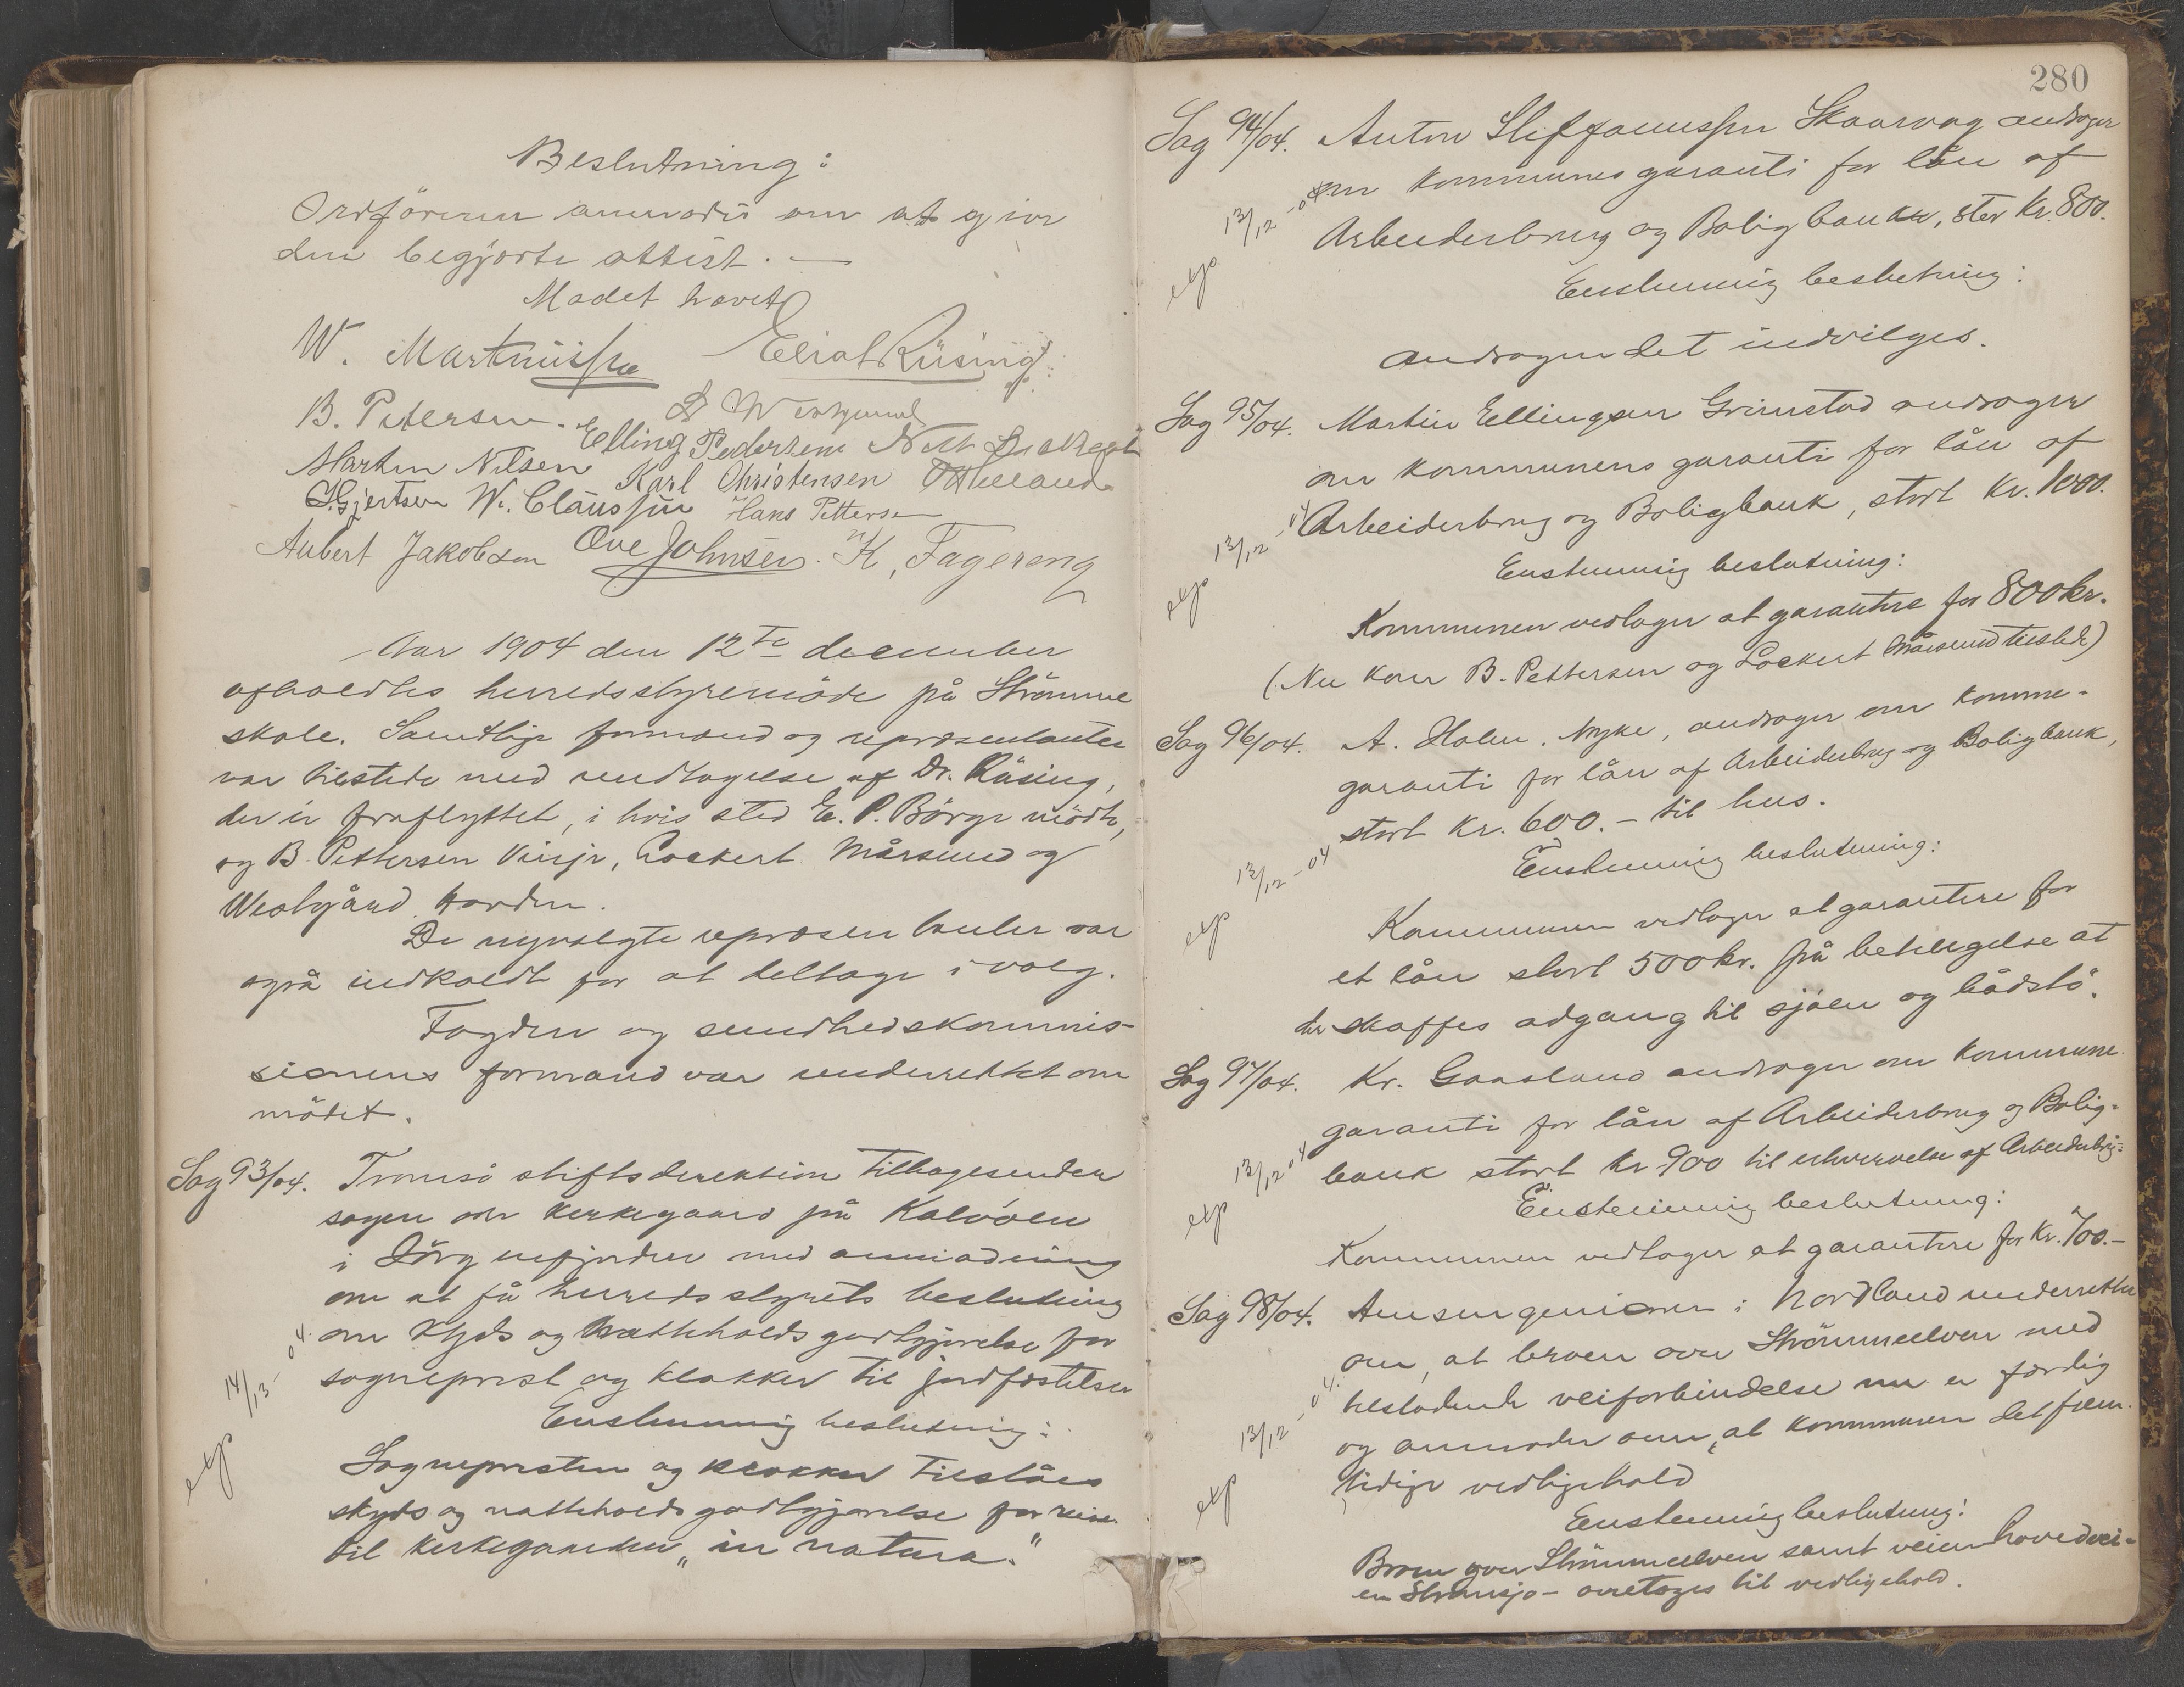 Beslutning:
Ordföreren anmodes om at give
den begjærte attest. —
Mødet hævet
W. Martinussen Eliot Rüsing
B. Petersen. Westgaard
Elling Pedersen
Martin Nilsen Karl Christensen
Gjertsen W. Claussen Hans Pettersen
Aubert Jakobsen Ove Johnsen. K. Fagereng
Aar 1904 den 12te december
afholdtes herredsstyremöde på Strömme
skole. Samtlige formænd og repræsentanter
var tilstede med undtagelse af Dr. Rüsing,
der er fraflyttet, i hvis sted E. P. Börge mödte,
og B. Pettersen Vinje, Lockert Mårsund og
Westgård Horden.
De nyvalgte repræsentanter var
også indkaldt for at deltage i valg.
Fogden og sundhedskommis-
sionens formand var underrettet om
mödet.
Sag 93/04. Tromsö stiftsdirektion tilbagesender
sagen om kirkegaard på Kalvöen
i Jörgenfjorden med anmodning
om at få herredsstyrets beslutning
om skyds og natteholdsgodtgjörelse for
sogneprest og klokker til jordfæstelser
14/12 - 04.
exp
Enstemmig beslutning:
Sognepresten og klokker tilståes
skyds og natteholdsgodtgjörelse for reise
til kirkegaarden "in natura."
280
Sag 94/04. Anton Steffanussen Skaarvag andrager
om kommunes garanti for lån af
Arbeiderbrug og Boligbanken, stor Kr. 800.
13/12 - 04
exp.
Enstemmig beslutning:
Andragendet indvilges.
Sag 95/04. Martin Ellingsen Grimstad andrager
om kommunens garanti for lån af
Arbeiderbrug og Boligbank, stort Kr. 1000.
13/12 - 04
exp
Enstemmig beslutning:
Kommunen vedtager at garantere for 800 kr.
(Nu kom B. Pettersen og Lockert Mårsund tilstede)
Sag 96/04. A. Holen, Nyke, andrager om komme-
garanti for lån af Arbeiderbrug og Boligbank,
stort Kr. 600.- til hus.
13/12 - 04
exp
Enstemmig beslutning:
Kommunen vedtager at garantere for
et lån stort 500 kr. på betingelse at
der skaffes adgang til sjöen og bådstö.
Sag 97/04. Kr. Gaasland andrager om kommune
garanti for lån af Arbeiderbrug og Bolig-
bank stort Kr 900 til erhvervelse af Arbeiderbrug.
13/12 04
exp
Enstemmig beslutning:
Kommunen vedtager at garantere for Kr. 700.-
Sag 98/04. Amtsingeniören i Nordland underretter
om, at broen over Strömmeelven med
tilstödende veiforbindelse nu er færdig
og anmoder om, at kommunen det frem-
tidige vedligehold
13/12 - 04.
exp
Enstemmig beslutning:
Broen over Strömmeelven samt veien hovedvei-
en - overtages til vedligehold.